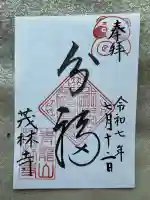 奉拝
令和七年
七月十二日
分福
青龍山
茂林寺